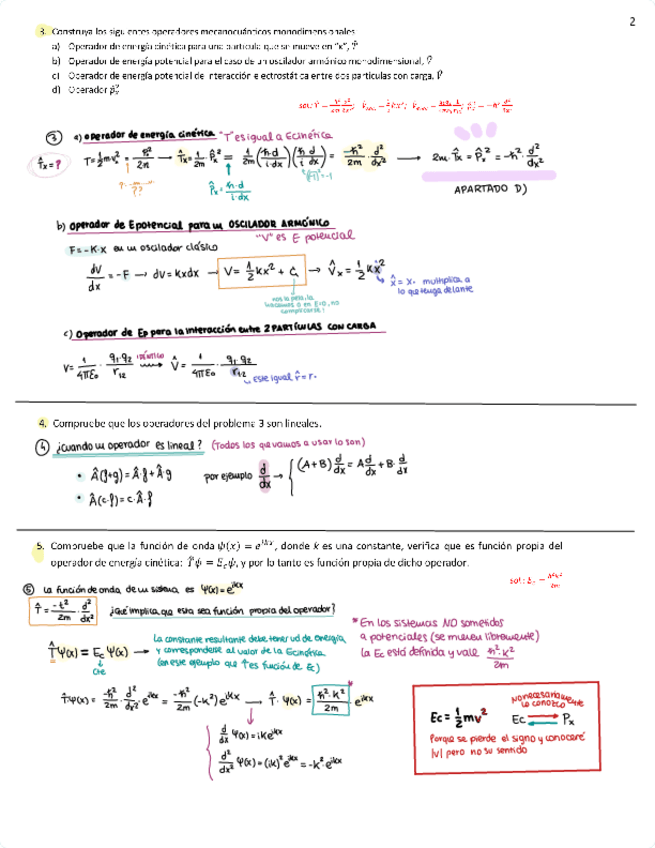 2
3. Construya los siguientes operadores mecanocuánticos monodimensionales
a) Operador de energía cinética para una partícula que se mueve en "x", T̂
b) Operador de energía potencial para el caso de un oscilador armónico monodimensional, V̂
c) Operador de energía potencial de interacción electrostática entre dos partículas con carga, V̂
d) Operador p̂ₓ²
③ a) operador de energía cinética "T es igual a Ecinética
T̂ₓ = ? T = 1/2 mvₓ² = pₓ²/2m → T̂ₓ = 1/2m · P̂ₓ² = 1/2m (ħ·d/i·dx)(ħ d/i dx) = -ħ²/2m · d²/dx² → 2m·T̂ₓ = P̂ₓ² = -ħ² · d²/dx²
P̂ₓ = ħ·d/i·dx
APARTADO D)
b) operador de Epotencial para un OSCILADOR ARMÓNICO
"V" es E potencial
F = -K·X en un oscilador clásico
dV/dx = -F → dV = Kxdx → V = 1/2 Kx² + C, → V̂ₓ = 1/2 Kx̂²
x̂ = x· multiplica a
lo que tenga delante
c) Operador de Ep para la interacción entre 2 PARTÍCULAS CON CARGA
V = 1/4πε₀ · q₁·q₂/r₁₂ idéntico V̂ = 1/4πε₀ · q₁·q₂/r₁₂
este igual r̂ = r·
4. Compruebe que los operadores del problema 3 son lineales.
④ ¿cuando un operador es lineal? (Todos los que vamos a usar lo son)
• Â(f+g) = Â·f + Â·g por ejemplo d/dx → (A+B) d/dx = A d/dx + B· d/dx
• Â(c·f) = c·Â·f
5. Compruebe que la función de onda ψ(x) = eⁱᵏˣ, donde k es una constante, verifica que es función propia del
operador de energía cinética: T̂ψ = E꜀ψ, y por lo tanto es función propia de dicho operador.
⑤ La función de onda de un sistema es ψ(x) = eⁱᵏˣ
T̂ = -ħ²/2m · d²/dx² ¿Qué implica que esta sea función propia del operador?
T̂ψ(x) = Ec ψ(x) →
Cte
La constante resultante debe tener ud de energía
y corresponderse al valor de la Ecinética
(en este ejemplo que T es función de Ec)
*En los sistemas NO sometidos
a potenciales (se mueve libremente)
la Ec está definida y vale ħ²·k²/2m
T̂ψ(x) = -ħ²/2m · d²/dx² · eⁱᵏˣ = -ħ²/2m (-k²)eⁱᵏˣ → T̂·ψ(x) = ħ²·k²/2m · eⁱᵏˣ
d/dx ψ(x) = ikeⁱᵏˣ
d²/dx² ψ(x) = (ik)²eⁱᵏˣ = -k²·eⁱᵏˣ
Ec = 1/2 mv²
No necesariamente
lo conozco
Ec Pₓ
Porque se pierde el signo y conoceré
|v| pero no su sentido